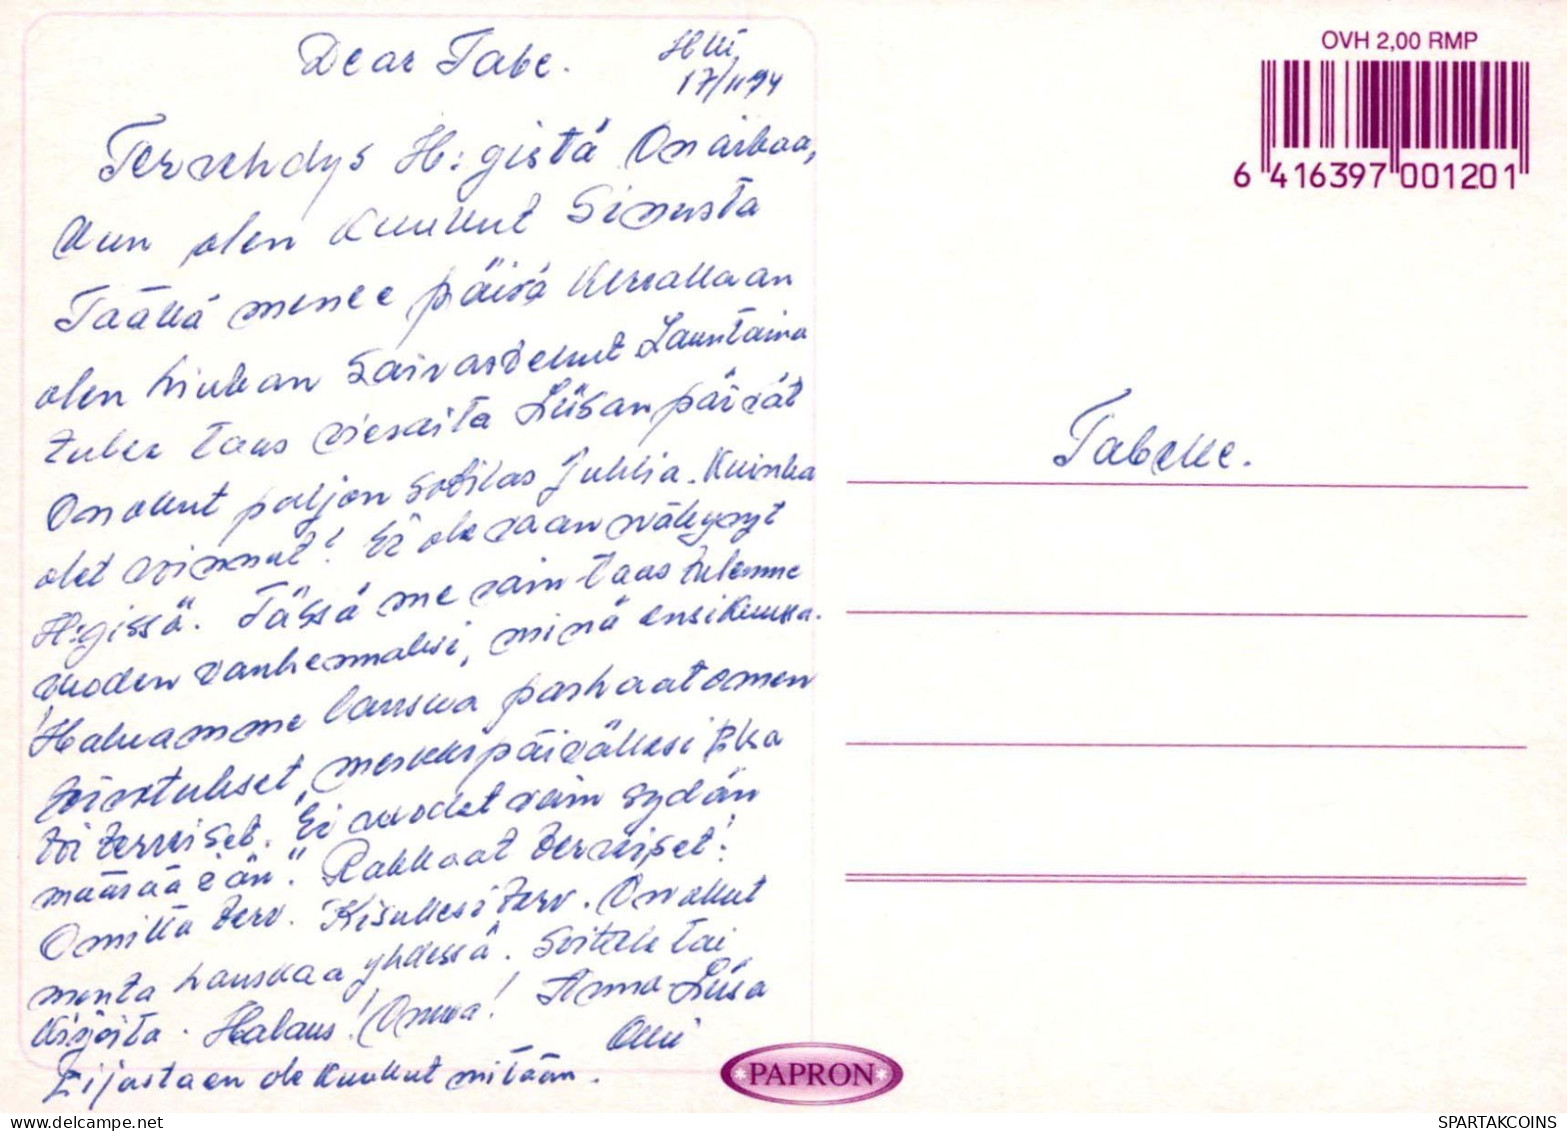 Dear Tabe.
Hki
17/11 94
Tervehdys H:gistä On aikaa,
kun olen kuullut Sinusta
Täällä menee päivä kerrallaan
olen hiukan sairastellut Lauantaina
tulee taas vieraita Liisan päivät
On ollut paljon sotilas juhlia. Kuinka
olet voinnut! Ei ole vaan näkynyt
H:gissä. Tässä me vain taas tulemme
vuoden vanhemmaksi, minä ensikuussa.
Haluamme lausua parhaat onnen
toivotukset, merkkipäiväksi
toi terveiset. "Ei vuodet vain sydän
määrää iän". Rakkaat terveiset!
Omilta terv. Kisulleksi terv. On ollut
monta hauskaa yhdessä. Soitele tai
kirjoita. Halaus! Onnea! Anna-Liisa
Olli
Eijasta en ole kuullut mitään.
OVH 2,00 RMP
6 416397 001201
Tabelle.
PAPRON
SPARTAKCOINS